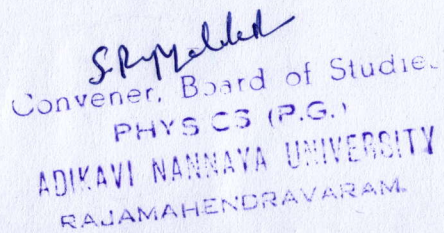 Convener, Board of Studies
PHYSICS (P.G.)
ADIKAVI NANNAYA UNIVERSITY
RAJAMAHENDRAVARAM.